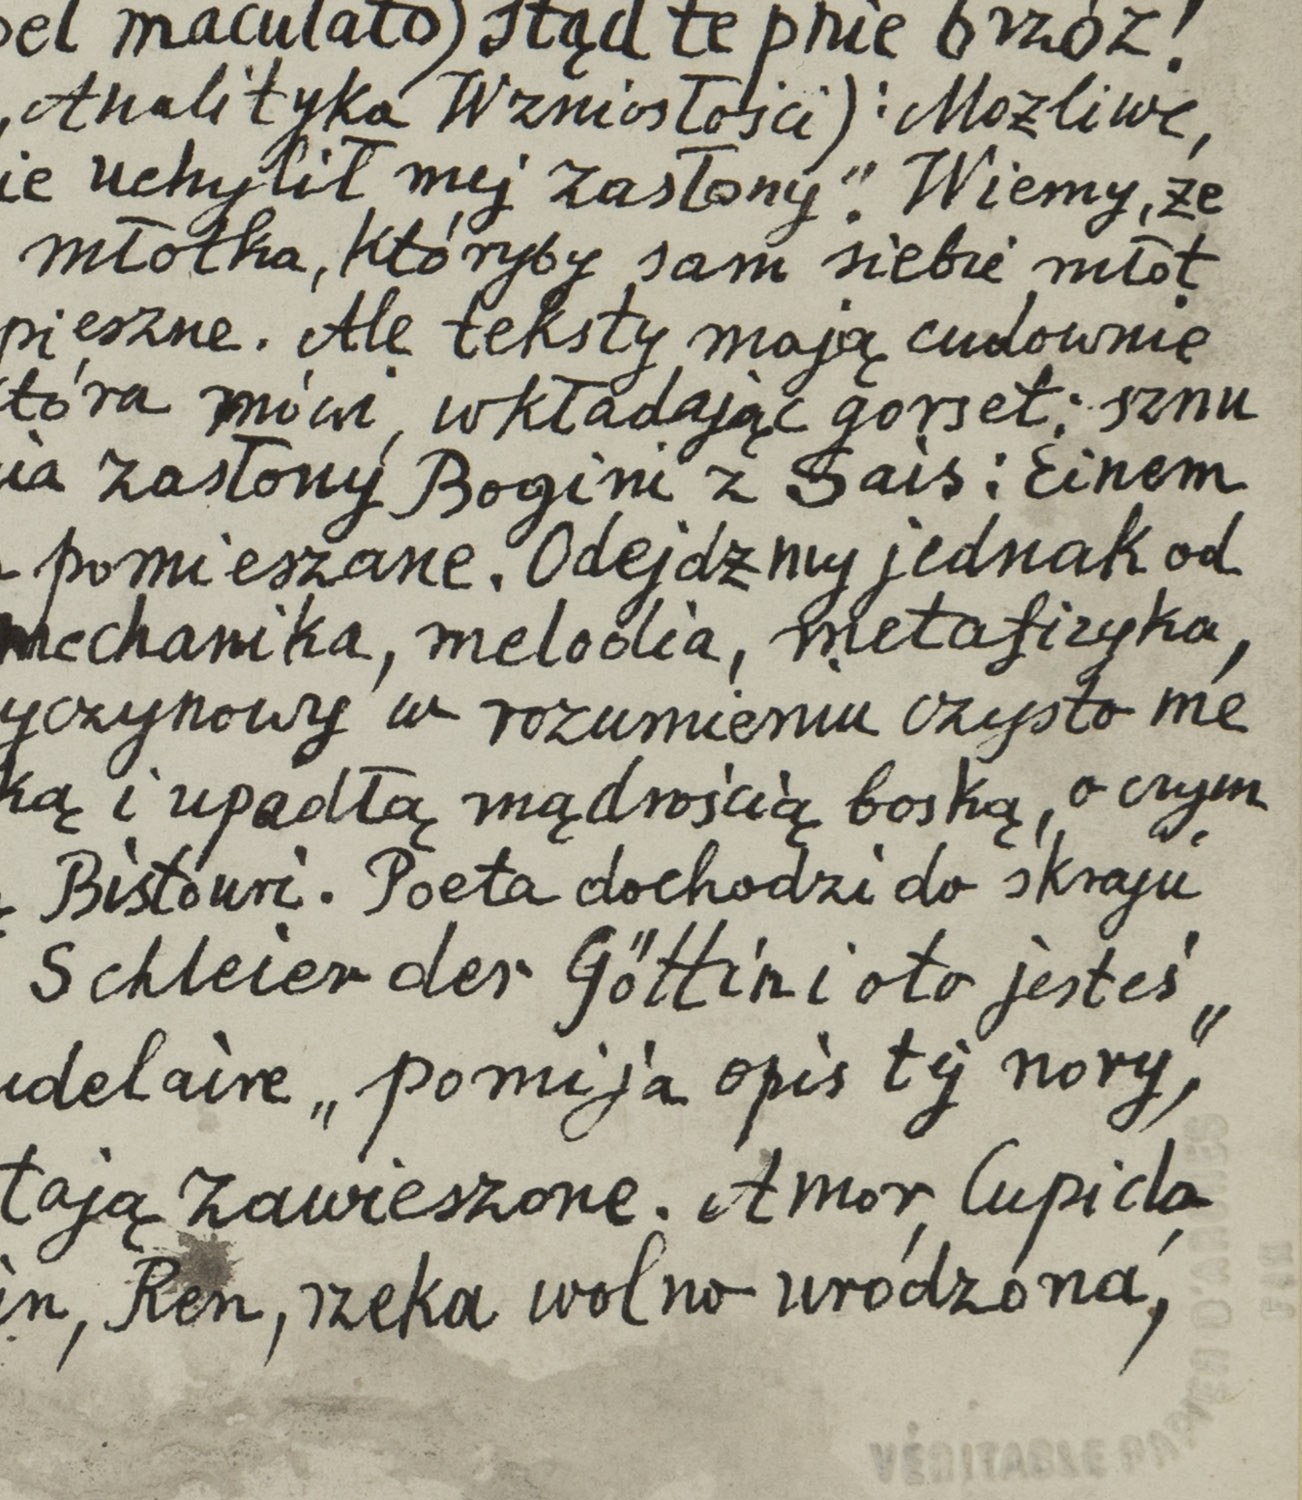 el maculato) stąd te pnie brzóz!
Analityka Wzniosłości): Możliwe,
ie uchylił mej zasłony". Wiemy, że
młotka, któryby sam siebie młot
pieszne. Ale teksty mają cudownie
tóra mówi, wkładając gorset: sznu
ia zasłony Bogini z Sais: Einem
pomieszane. Odejdźmy jednak od
mechanika, melodia, metafizyka,
yczynowy w rozumieniu czysto me
ką i upadłą mądrością boską, o czym
Bistouri. Poeta dochodzi do skraju
Schleier der Göttin i oto jesteś „
udelaire „pomija opis tej nory",
tają zawieszone. Amor, Cupido
in, Ren, rzeka wolno urodzona,
VÉRITABLE PA